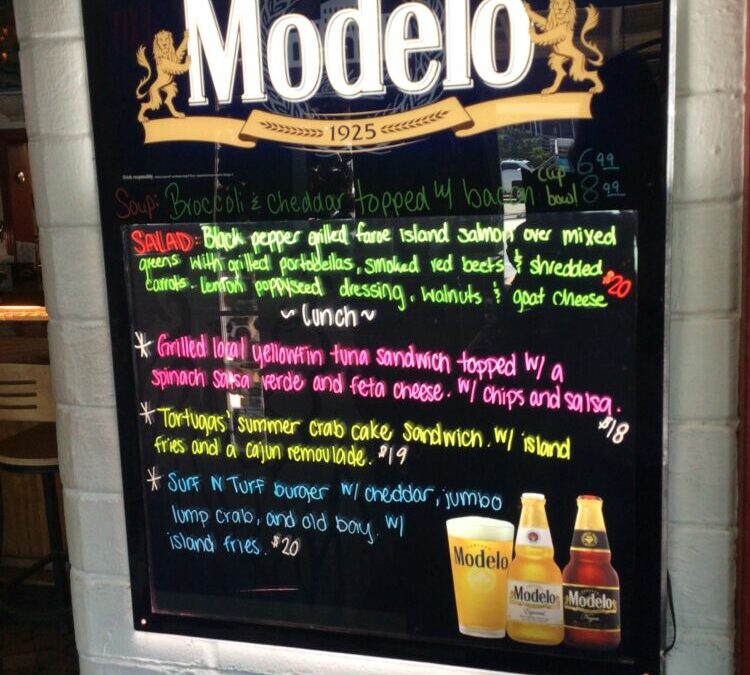 Modelo
1925
Drink responsibly.
Soup: Broccoli & cheddar topped w/ bacon cup 6.99
bowl 8.99
SALAD: Black pepper grilled faroe island salmon over mixed
greens with grilled portobellas, smoked red beets & shredded
carrots. Lemon poppyseed dressing, walnuts & goat cheese $20
~ Lunch ~
* Grilled local yellowfin tuna sandwich topped w/ a
spinach salsa verde and feta cheese. w/ chips and salsa.
$18
* Tortugas' summer crab cake sandwich. w/ island
fries and a cajun remoulade. $19
* Surf N Turf burger w/ cheddar, jumbo
lump crab, and old bay. w/
island fries. $20
Modelo
Modelo
Especial
Modelo
Negra